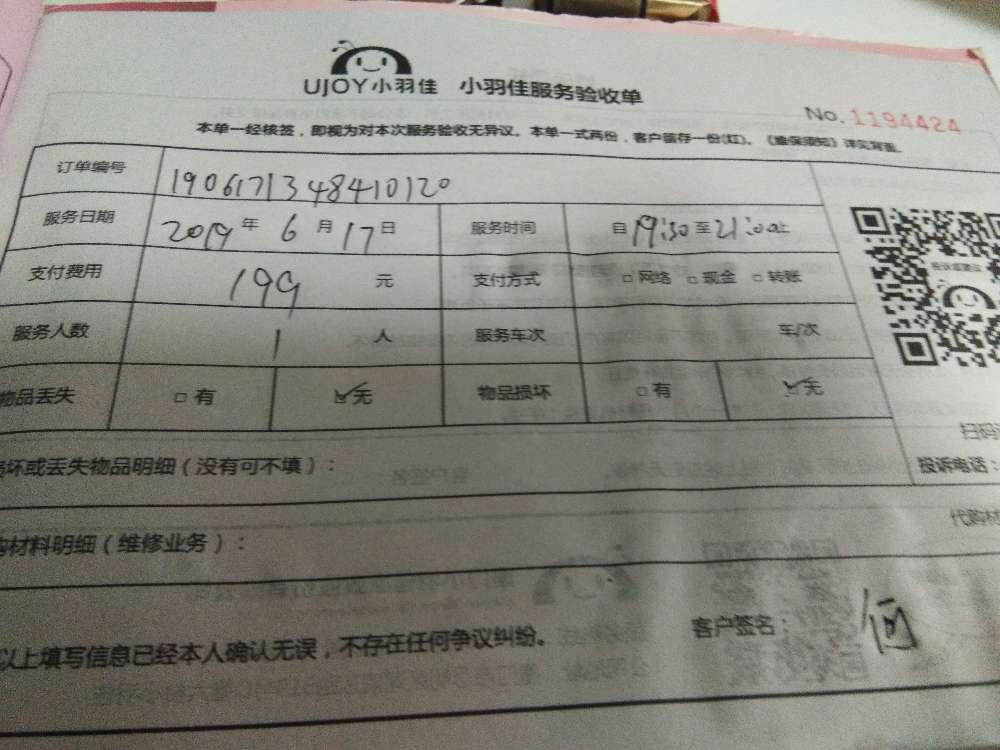 UJOY小羽佳 小羽佳服务验收单
No.1194424
本单一经核签，即视为对本次服务验收无异议。本单一式两份，客户留存一份(红)。《维保须知》详见背面。
订单编号 190617134841012０
服务日期 2019 年 6 月 17 日 服务时间 自 19:30 至 21:00 止
支付费用 199 元 支付方式 □ 网络 □ 现金 □ 转账
服务人数 1 人 服务车次 车/次
物品丢失 □ 有 ☑ 无 物品损坏 □ 有 ☑ 无
扫码
坏或丢失物品明细（没有可不填）：
投诉电话：
购材料明细（维修业务）：
代购材
以上填写信息已经本人确认无误，不存在任何争议纠纷。
客户签名： 何